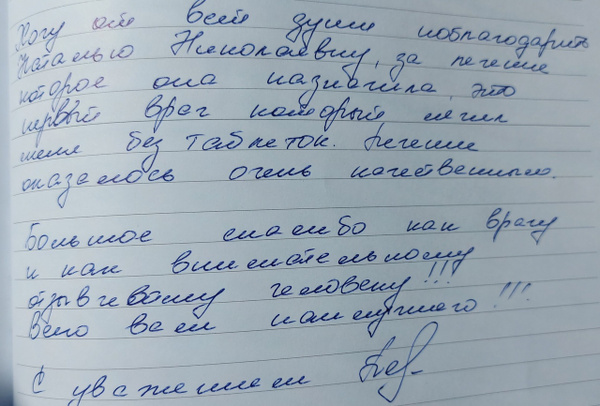 Хочу от всей души поблагодарить
Наталью Николаевну, за лечение
которое она назначила, это
первый врач который лечил
меня без таблеток. Лечение
оказалось очень качественным.
Большое спасибо как врачу
и как внимательному
отзывчевому человеку!!!
Всего Вам наилучшего!!!
С уважением